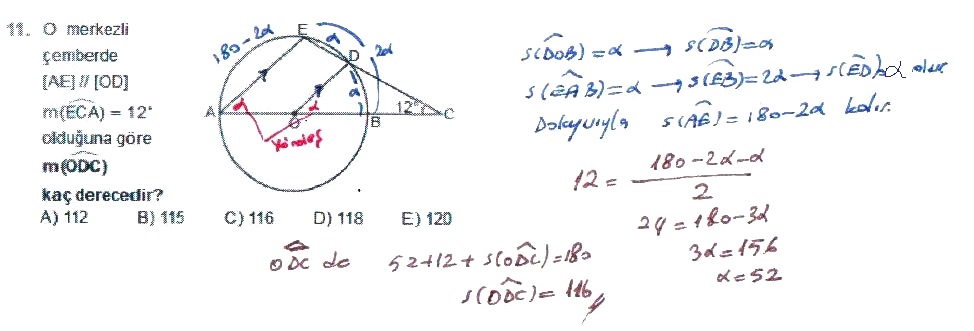 11. O merkezli
çemberde
[AE] // [OD]
m(ECA) = 12°
olduğuna göre
m(ODC)
kaç derecedir?
A) 112 B) 115 C) 116 D) 118 E) 120
180-2α
E
α
D
2α
α
A
α
O
α
B
12°
C
Yöndeş
s(DOB) = α → s(DB) = α
s(EAB) = α → s(EB) = 2α → s(ED) = α olur
Dolayısıyla s(AE) = 180-2α kalır.
12 = 180-2α-α
2
24 = 180-3α
3α = 156
α = 52
ODC de 52+12+s(ODC) = 180
s(ODC) = 116